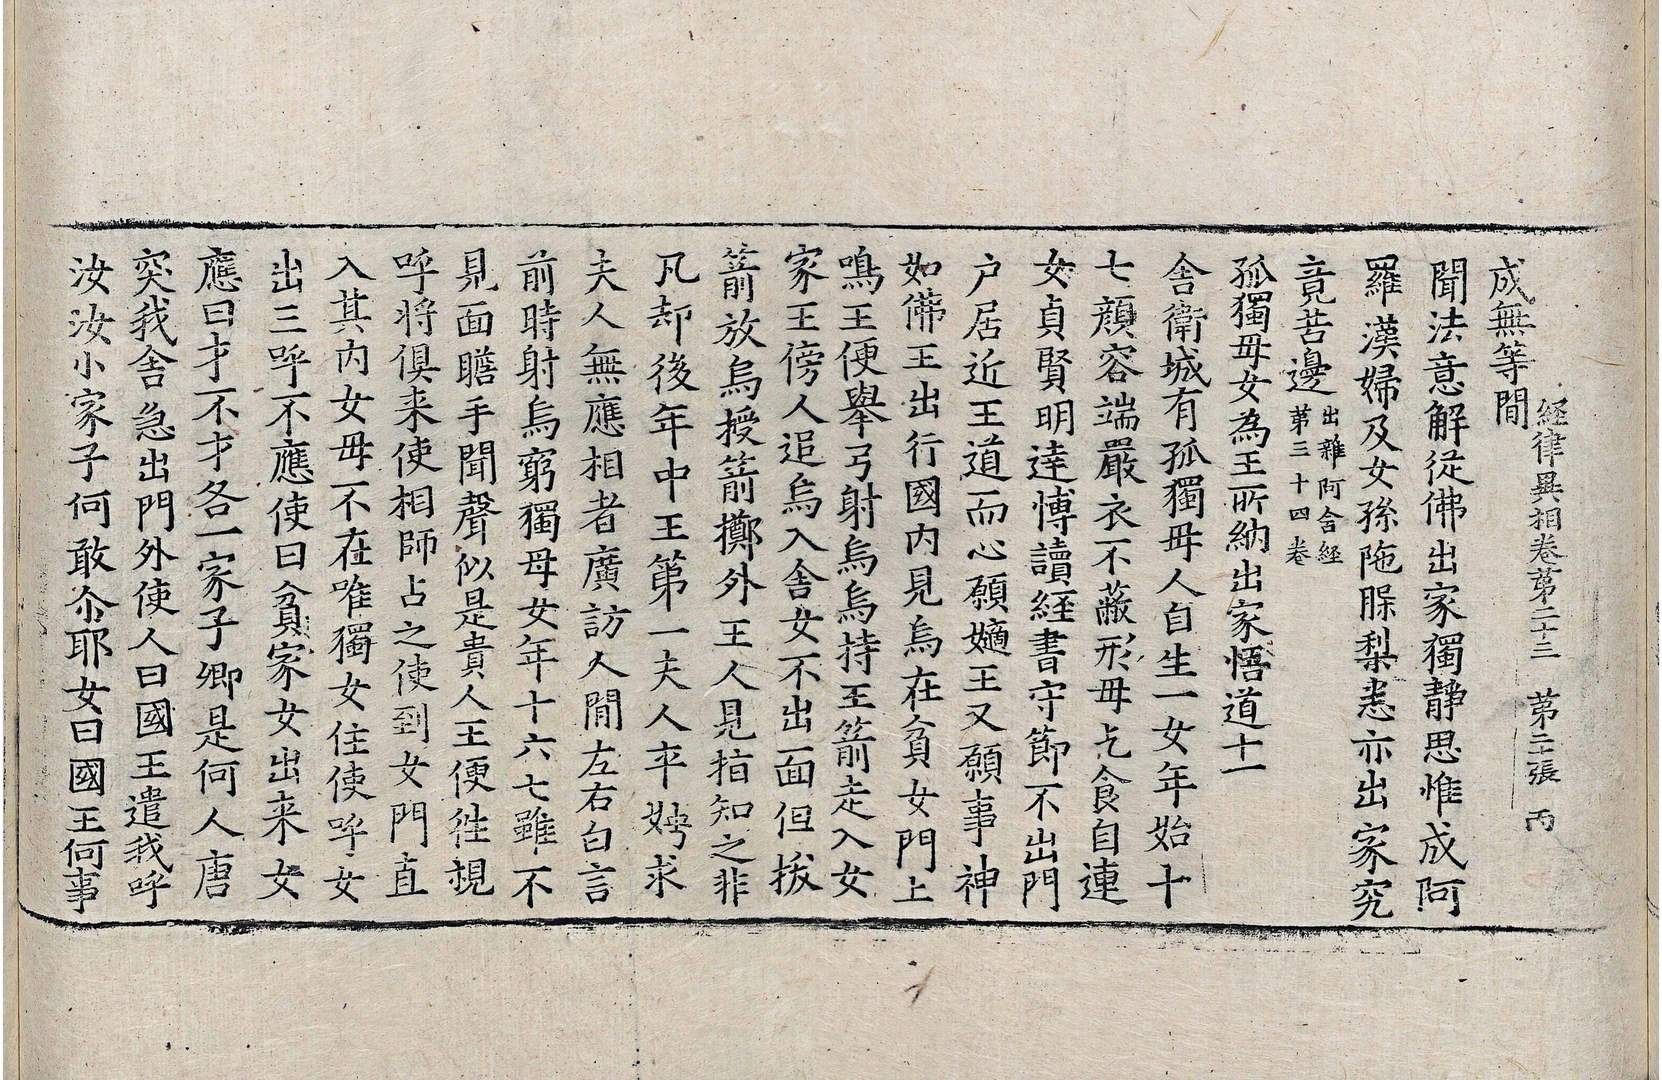 経律異相卷第二十三　第二十張　丙
成無等閒
聞法意解從佛出家獨靜思惟成阿
羅漢婦及女孫陁脲梨恚亦出家究
竟苦邊 出雜阿含經
第三十四卷
孤獨母女為王所納出家悟道十一
舍衛城有孤獨母人自生一女年始十
七顏容端嚴衣不蔽形母乞食自連
女貞賢明達博讀経書守節不出門
户居近王道而心願嫡王又願事神
如佛王出行國内見烏在貧女門上
鳴王便舉弓射烏烏持王箭走入女
家王傍人追烏入舍女不出面但拔
箭放烏授箭擲外王人見指知之非
凡却後年中王第一夫人卒娉求
夫人無應相者廣訪人閒左右白言
前時射烏窮獨母女年十六七雖不
見面瞻手聞聲似是貴人王便徃視
呼將俱来使相師占之使到女門直
入其内女母不在唯獨女住使呼女
出三呼不應使曰貧家女出来女
應曰才不才各一家子卿是何人唐
突我舍急出門外使人曰國王遣我呼
汝汝小家子何敢尒耶女曰國王何事